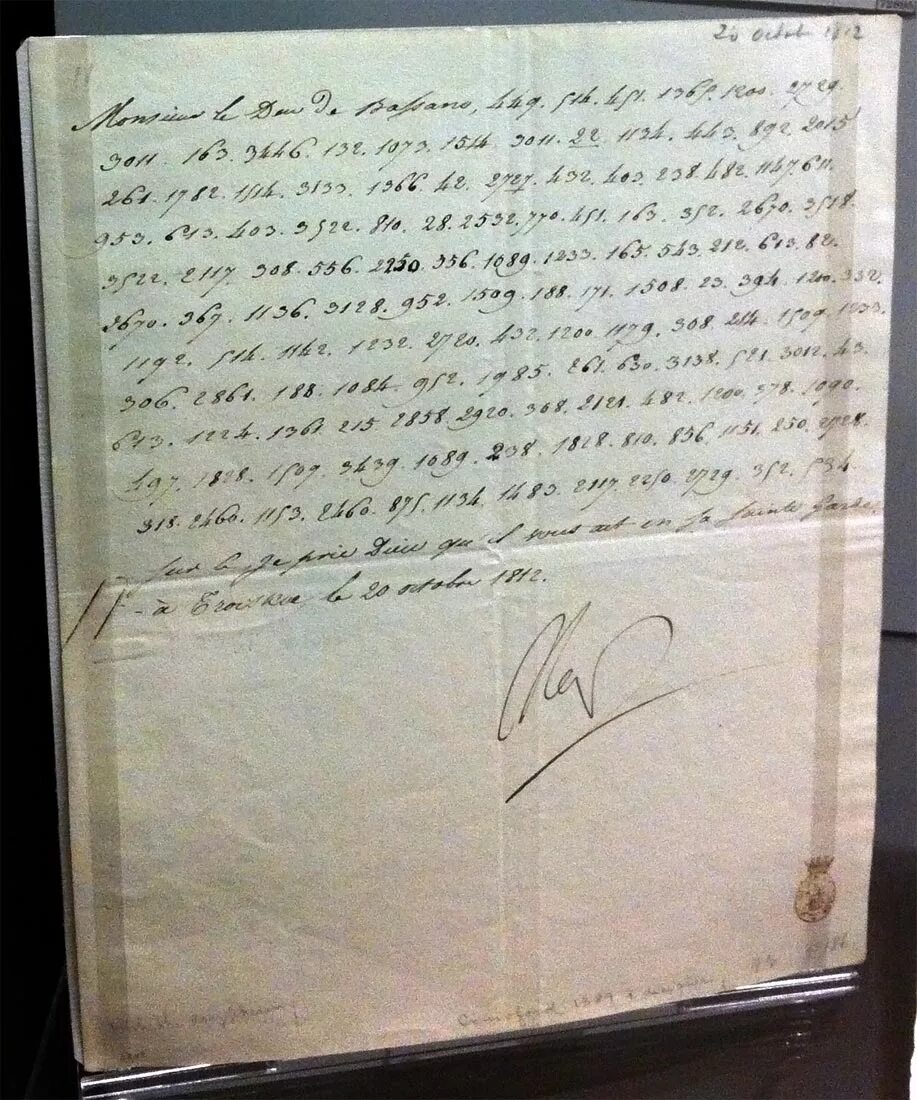 20 octob 1812
Monsieur le Duc de Bassano, 449. 514. 451. 1365. 1200. 2729.
3011. 163. 3446. 132. 1073. 1544. 3011. 22. 1134. 443. 892. 2015
261. 1782. 1114. 3133. 1366. 42. 2727. 432. 403. 238. 482. 1147. 611.
953. 613. 403. 3522. 810. 28. 2532. 770. 451. 163. 352. 2670. 3518.
3522. 2117. 308. 556. 2250. 356. 1089. 1233. 165. 543. 212. 613. 82.
2670. 367. 1136. 3128. 952. 1509. 188. 171. 1508. 23. 394. 1200. 332.
1192. 514. 1142. 1232. 2720. 432. 1200. 1179. 308. 214. 1509. 1233.
306. 2861. 188. 1084. 952. 1985. 261. 630. 3138. 521. 3012. 43.
613. 1224. 1361. 215. 2858. 2920. 368. 2121. 482. 1200. 278. 1090.
497. 1828. 1509. 3439. 1089. 238. 1828. 810. 856. 1151. 250. 2728.
318. 2460. 1153. 2460. 875. 1134. 1483. 2117. 2250. 2729. 352. 534.
Sur ce je prie Dieu qu'il vous ait en sa sainte garde.
à Troiskoe le 20 octobre 1812.
Nap